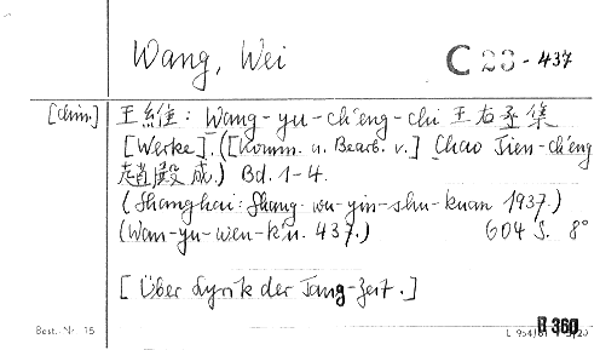 Wang, Wei
C 23 - 437
[chin.] 王維: Wang-yu-ch'eng-chi 王右丞集
[Werke]. ([Komm. u. Bearb. v.] Chao Tien-ch'eng
趙殿成.) Bd. 1-4.
(Shanghai: Shang-wu-yin-shu-kuan 1937.)
(Wan-yu-wen-k'u. 437.) 604 S. 8°
[Über Lyrik der Tang-Zeit.]
Best.-Nr 15
R 360